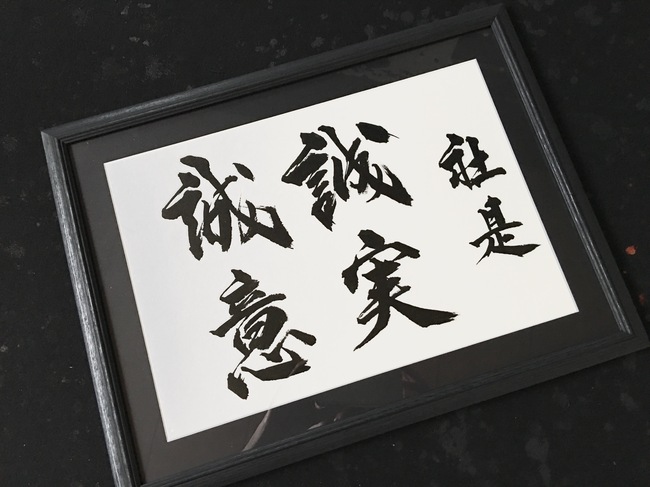 社是
誠実
誠意